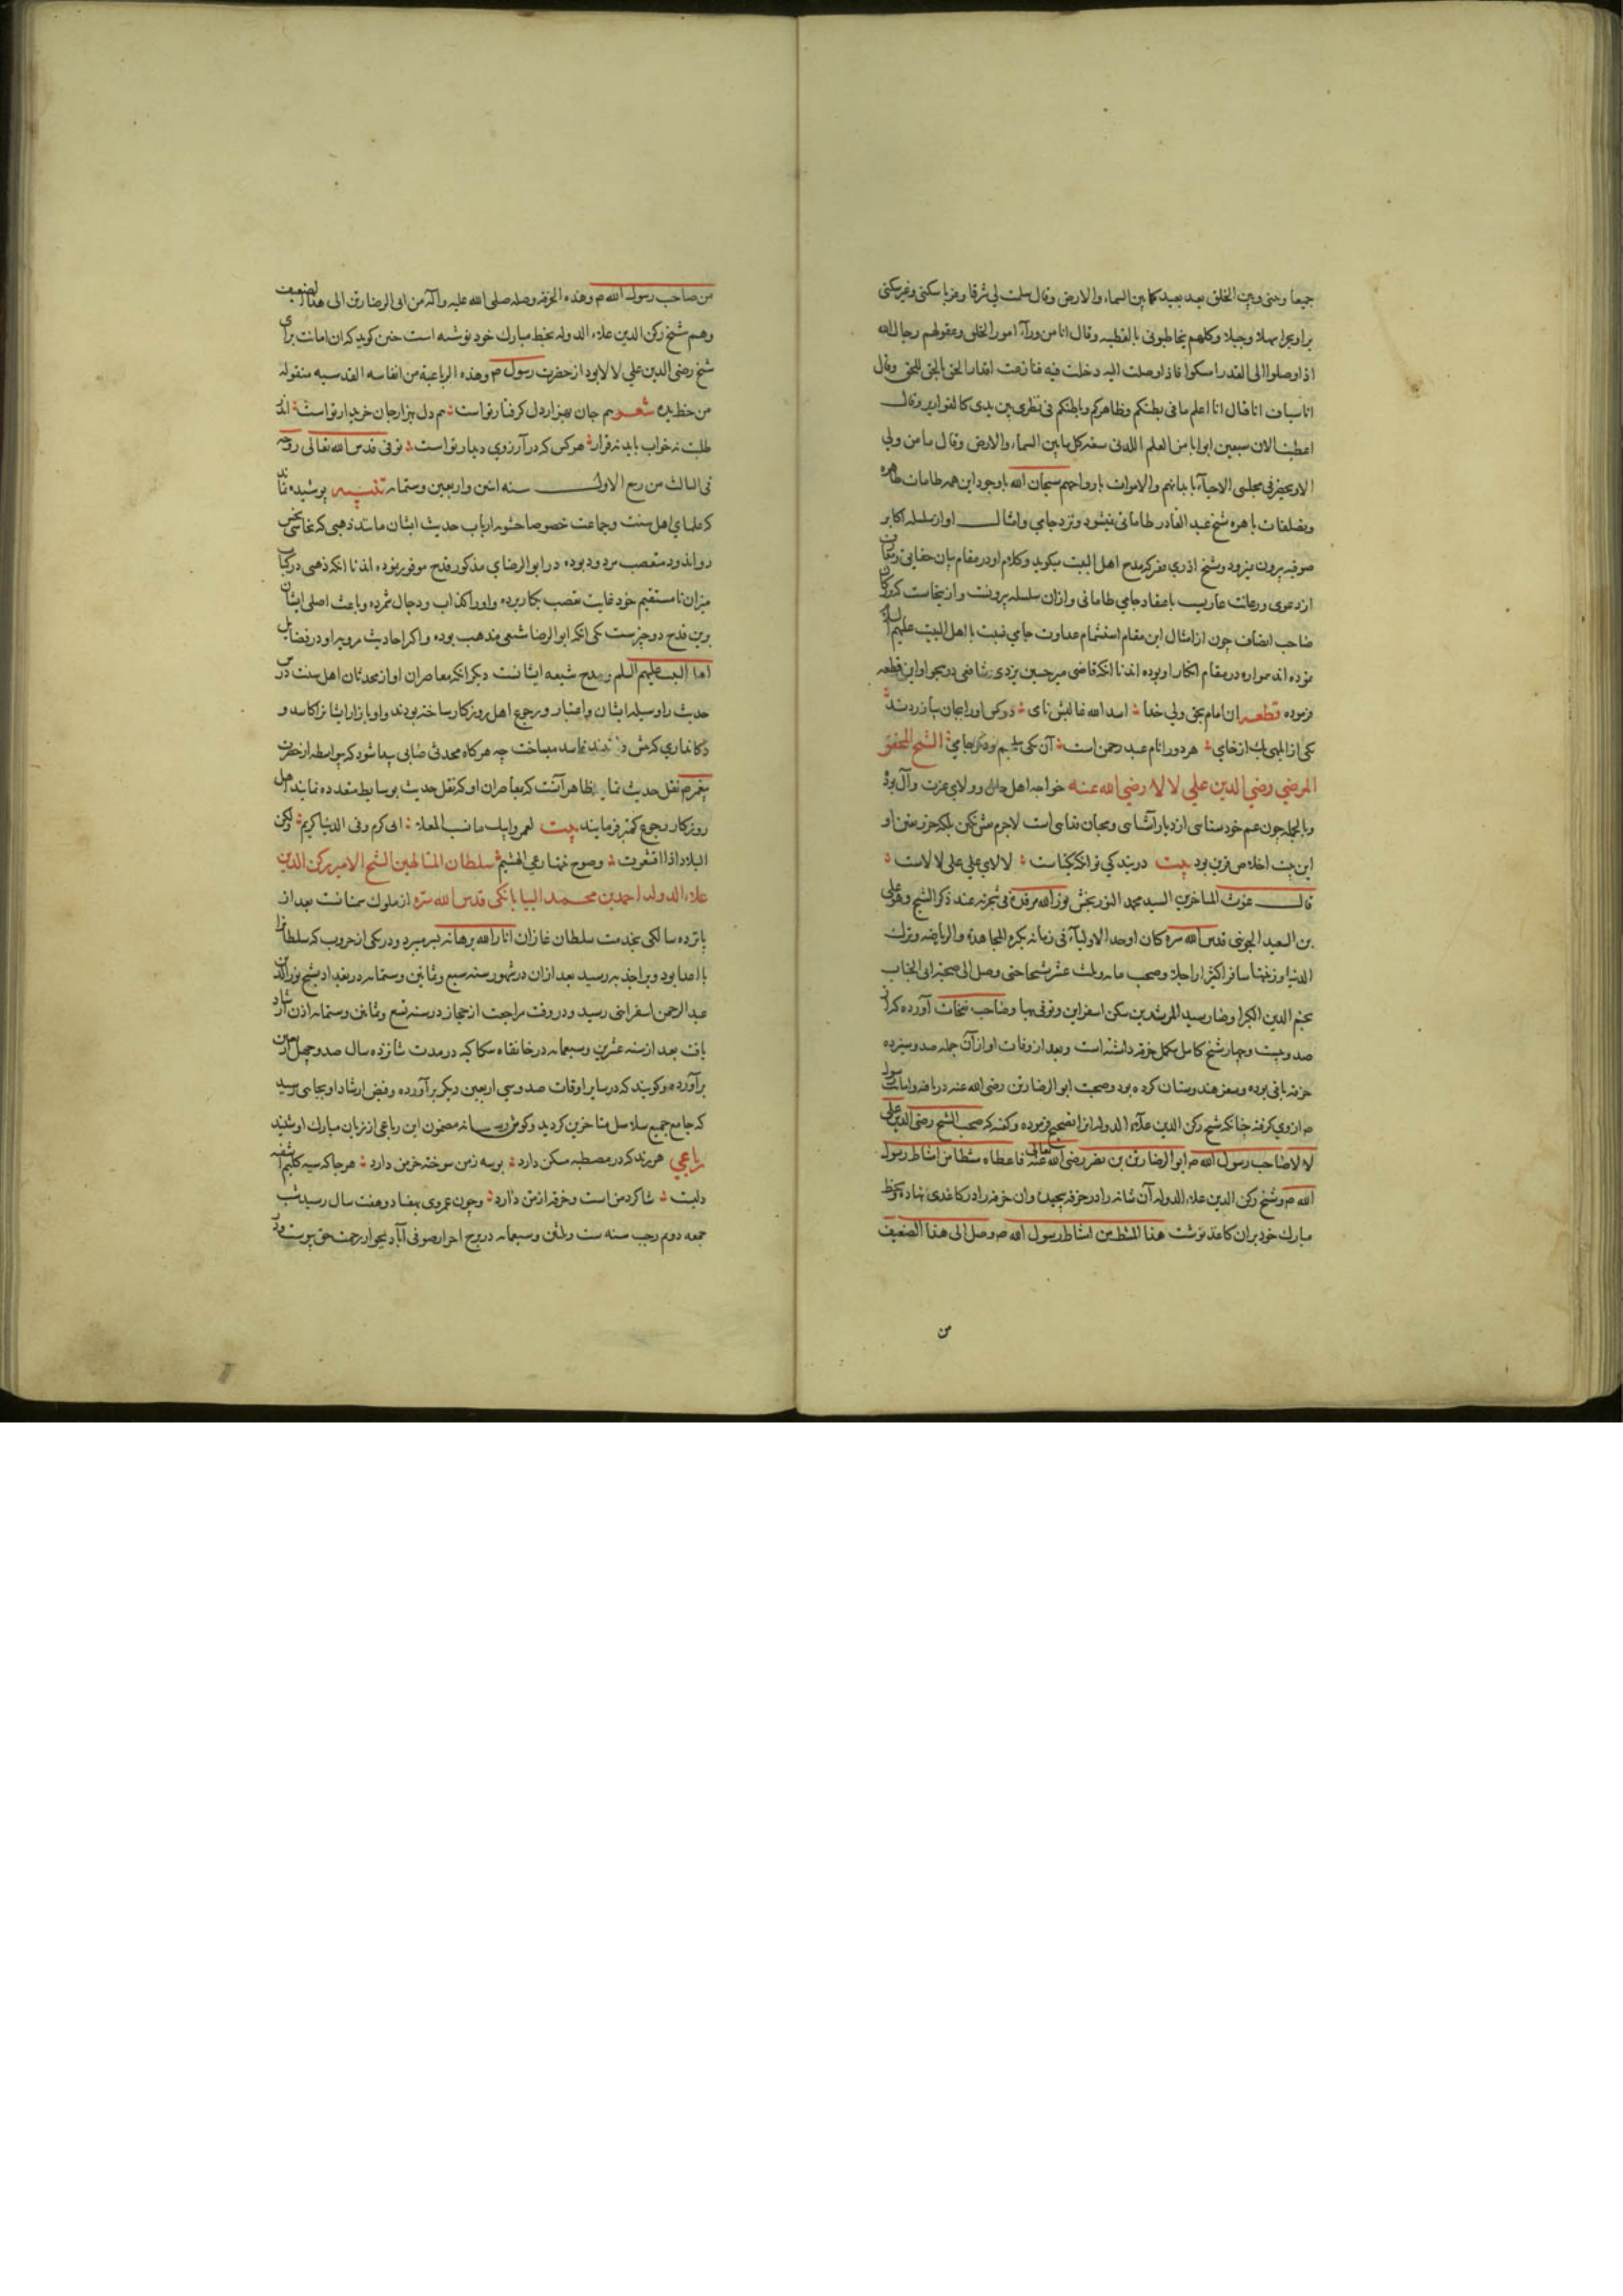 جمیعا وبینی وبین الخلق بعید بعید کما بین السماء والارض وقال سلمت لی شرقا وغربا سکنی وغیر سکنی
برا وبحرا سهلا وجبلا وکلهم یخاطبونی بالقطبیه وقال انا من ورآء امور الخلق وعقولهم رجال الله
اذا وصلوا الی القدر امسکوا فاذا وصلت الیه دخلت فیه فنازعت اقدار الحق بالحق للحق وقال
انا قال انا اعلم ما فی بطنکم وظاهرکم وباطنکم فی نظری بین یدی کالقواریر وقال
اعطیت الان سبعین ابوابا من العلم اللدنی سعة کل باب ما بین السماء والارض وقال ما من ولی
الا ویحضر فی مجلسی الاحیآء بابدانهم والاموات بارواحهم سبحان الله باوجود این همه طامات ظاهره
وبصلفات باهره شیخ عبد القادر طاماتی نمیشود ونزد جامی وامثال او از سلسله اکابر
صوفیه بیرون نمیرود وشیخ اذری صرف که مدح اهل البیت میکوید وکلام او در مقام بیان حقایق ومعارف
از دعوی ورعونت عاریست باعتقاد جامی طاماتی وازان سلسله بیرونست وازینجاست که
صاحب انصاف چون از امثال این مقام استشمام عداوت جامی نسبت با اهل البیت علیهم السلام
نموده اند همواره در مقام انکار او بوده اند تا انکه قاضی میر حسین یزدی شافعی در هجو او این قطعه
فرموده قطعه ان امام بحق ولی خدا اسد الله غالبش نامی دو کس اورا بجان بیازردند
یکی از ابلهی یک از خامی هر دو را نام عبد رحمن است آن یکی ملجم و دکر جامی الشیخ المحقق
المرضی رضی الدین علی لالا رضی الله عنه خواجه اهل حال و والی عزت وآل بود
وبالجمله چون عم خود سنایی از دیار آشنایی ومحبان فدایی است لاجرم
این بیت اخلاص قرین بود بیت در بندکی تو انکه یکتاست لالای علی علی لالاست
قال غوث المتاخرین السید محمد النوربخش نور الله مرقده فی شجرته عند ذکر الشیخ وهو علی
بن السعید الجوینی قدس الله سره کان اوحد الاولیآء فی زمانه بکثرة المجاهدة والریاضة وترک
الدنیا وزینتها سافر اکثر وصحب مایه وثلث عشر شیخا حتی وصل الی صحبة ابی الجناب
نجم الدین الکبرا وصار سید المرشدین سکن اسفراین وتوفی بها وصاحب نفحات آورده که از
صد وبیست وچهار شیخ کامل مکمل خرقه داشته است وبعد از وفات او از آن جمله صد وسیزده
خرقه باقی بوده وسفر هندوستان کرده بود وصحبت ابو الرضا رتن رضی الله عنه دریافته وامانت رسول
م از وی کرفته چنانکه شیخ رکن الدین علاء الدوله انرا تصحیح فرموده وکفته که صحب الشیخ رضی الدین علی
لالا صاحب رسول الله م ابو الرضا رتن بن نصر رضی الله تعالی عنه فاعطاه مشطا من امشاط رسول
الله م وشیخ رکن الدین علاء الدوله آن شانه را در خرقه پیچیده وان خرقه را در کاغذی نهاده وبخط
مبارک خود بران کاغذ نوشت هذا المشط من امشاط رسول الله م وصل الی هذا الضعیف
من
من صاحب رسول الله م وهذه الخرقه وصله صلی الله علیه وآله من ابی الرضا رتن الی هذا الضعیف
وهم شیخ رکن الدین علاء الدوله بخط مبارک خود نوشته است چنین کویند که ان امانت برای
شیخ رضی الدین علی لالا بود از حضرت رسول م وهذه الرباعیة من انفاسه القدسیه منقوله
من خط یده شعر هم جان بهزار دل کرفتار تو است هم دل بهزار جان خریدار تو است اندر
طلبت نه خواب یابد نه قرار هر کس که در آرزوی دیدار تو است توفی قدس الله تعالی روحه
فی الثالث من ربیع الاول سنه اثنین واربعین وستمایه تنبیه پوشیده نماند
که علمای اهل سنت وجماعت خصوصا حشویه ارباب حدیث ایشان مانند ذهبی که نحاسی بخس
رواندود متعصب مردود بوده در ابو الرضای مذکور قدح موفور نموده اند تا انکه ذهبی در کتاب
میزان نا مستقیم خود غایت تعصب بکار برده واورا کذاب ودجال شمرده وباعث اصلی ایشان
برین قدح دو چیزست یکی انکه ابو الرضا شیعی مذهب بوده واکثر احادیث مرویه او در فضایل
اهل البیت علیهم السلم ومدح شیعه ایشانست دیکر انکه معاصران او از محدثان اهل سنت درس
حدیث را وسیله ایشان واعتبار ومرجع اهل روزکار ساخته بودند واو بازار ایشانرا کاسد و
دکانداری کرمش ودیدند فاسد میساخت چه هر کاه محدثی صحابی پیدا شود که بیواسطه از حضرت
پیغمبر م نقل حدیث نماید ظاهر آنست که بمعاصران او که نقل حدیث بوسایط متعدده نمایند اهل
روزکار رجوع کمتر فرمایند بیت لعمر ابیک ما نسب المعلا الی کرم وفی الدنیا کریم ولکن
البلاد اذا اقشعرت وصوح نبتها رعی الهشیم سلطان المتالهین الشیخ الامیر رکن الدین
علاء الدوله احمد بن محمد البیابانکی قدس الله سره از ملوک سمنانست بعد از
پانزده سالکی بخدمت سلطان غازان انار الله برهانه بسر میبرد ودر یکی از حروب که سلطانرا
با اعدا بود ویرا جذبه رسید بعد ازان در شهور سنه سبع وثمانین وستمایه در بغداد بشیخ نور الدین
عبد الرحمن اسفراینی رسید ودر وقت مراجعت از حجاز در سنه تسع وثمانین وستمایه اذن ارشاد
یافت بعد از سنه عشرین وسبعمایه در خانقاه سکاکیه در مدت شانزده سال صد وچهل اربعین
برآورده وکویند که در سایر اوقات صد وسی اربعین دیکر برآورده وفیض ارشاد او بجایی رسید
که جامع جمیع سلاسل متاخرین کردید وکوش مضمون این رباعی از زبان مبارک او شنید
رباعی هر رند که در مصطبه مسکن دارد بویی ز من سوخته خرمن دارد هر جا که سیه کلیم آشفته
دلیست شاکرد من است وخرقه از من دارد وچون عمر وی بهفتاد وهفت سال رسید شب
جمعه دوم رجب سنه ست وثلثین وسبعمایه در برج احرار صوفی آباد بجوار رحمت حق پیوست ودر